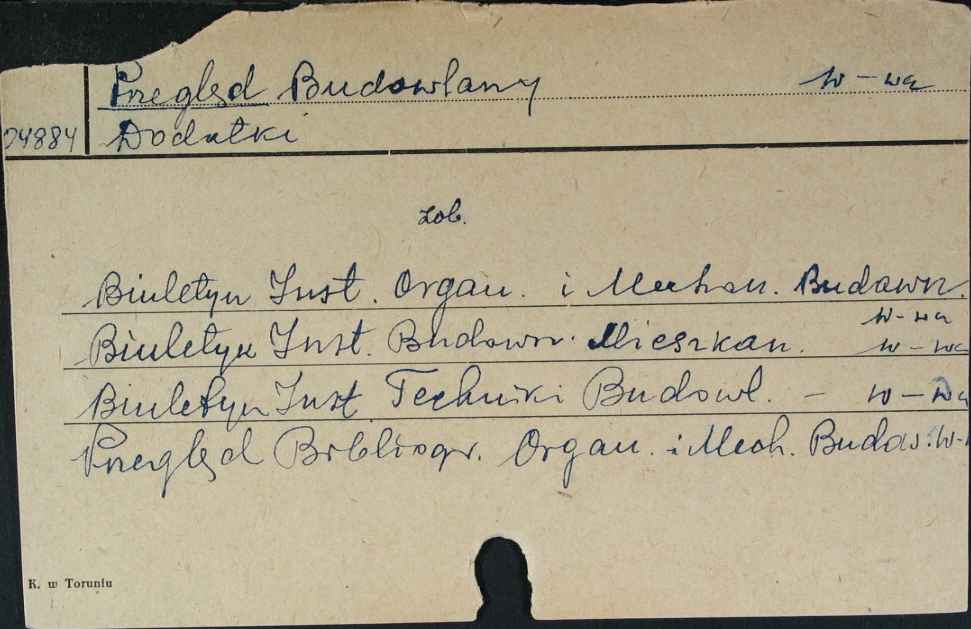 Przegląd Budowlany W-wa
04884 Dodatki
zob.
Biuletyn Inst. Organ. i Mechan. Budown.
W-wa
Biuletyn Inst. Budown. Mieszkan. W-wa
Biuletyn Inst Techniki Budowl. - W-wa
Przegląd Bibliogr. Organ. i Mech. Budow. W-
K. w Toruniu